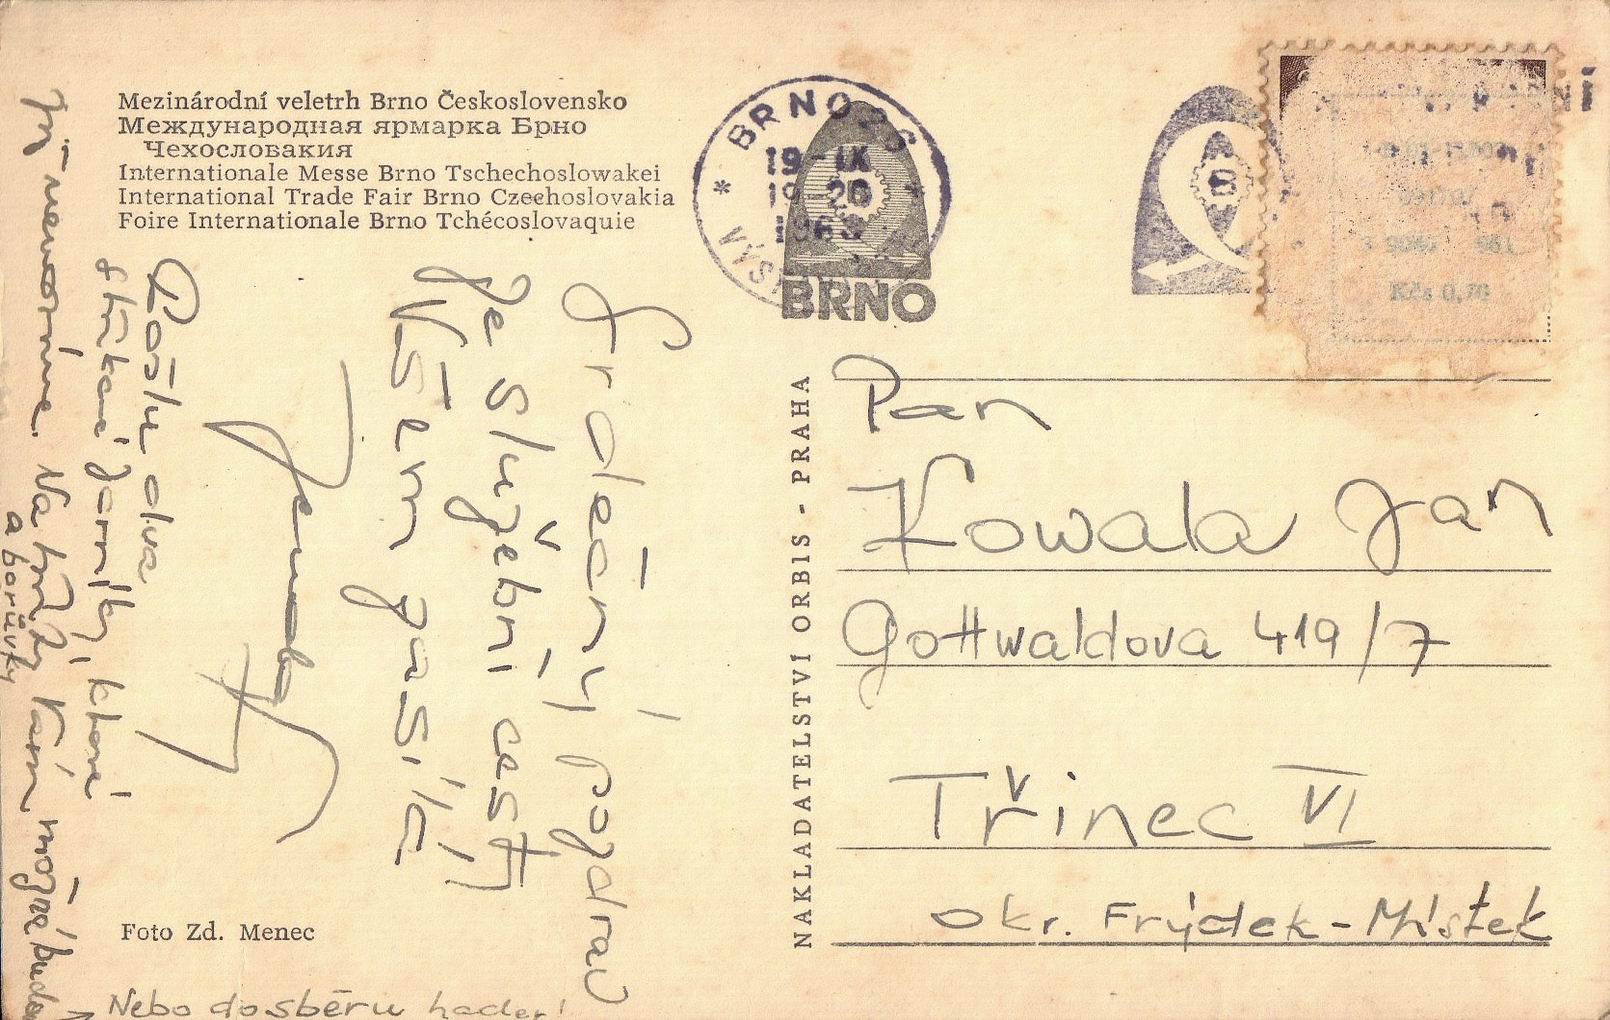 Mezinárodní veletrh Brno Československo
Международная ярмарка Брно
Чехословакия
Internationale Messe Brno Tschechoslowakei
International Trade Fair Brno Czechoslovakia
Foire Internationale Brno Tchécoslovaquie
BRNO
19-IX
19-20
BRNO
Kčs 0,70
Srdečný pozdrav
ze služební cesty
Všem zasílá
Pošlu dva
které
již nenosíme. Na Vám možná budou
a borůvky
Nebo do sběru hader!
Foto Zd. Menec
NAKLADATELSTVÍ ORBIS - PRAHA
Pan
Kowala Jan
Gottwaldova 419/7
Třinec VI
okr. Frýdek-Místek